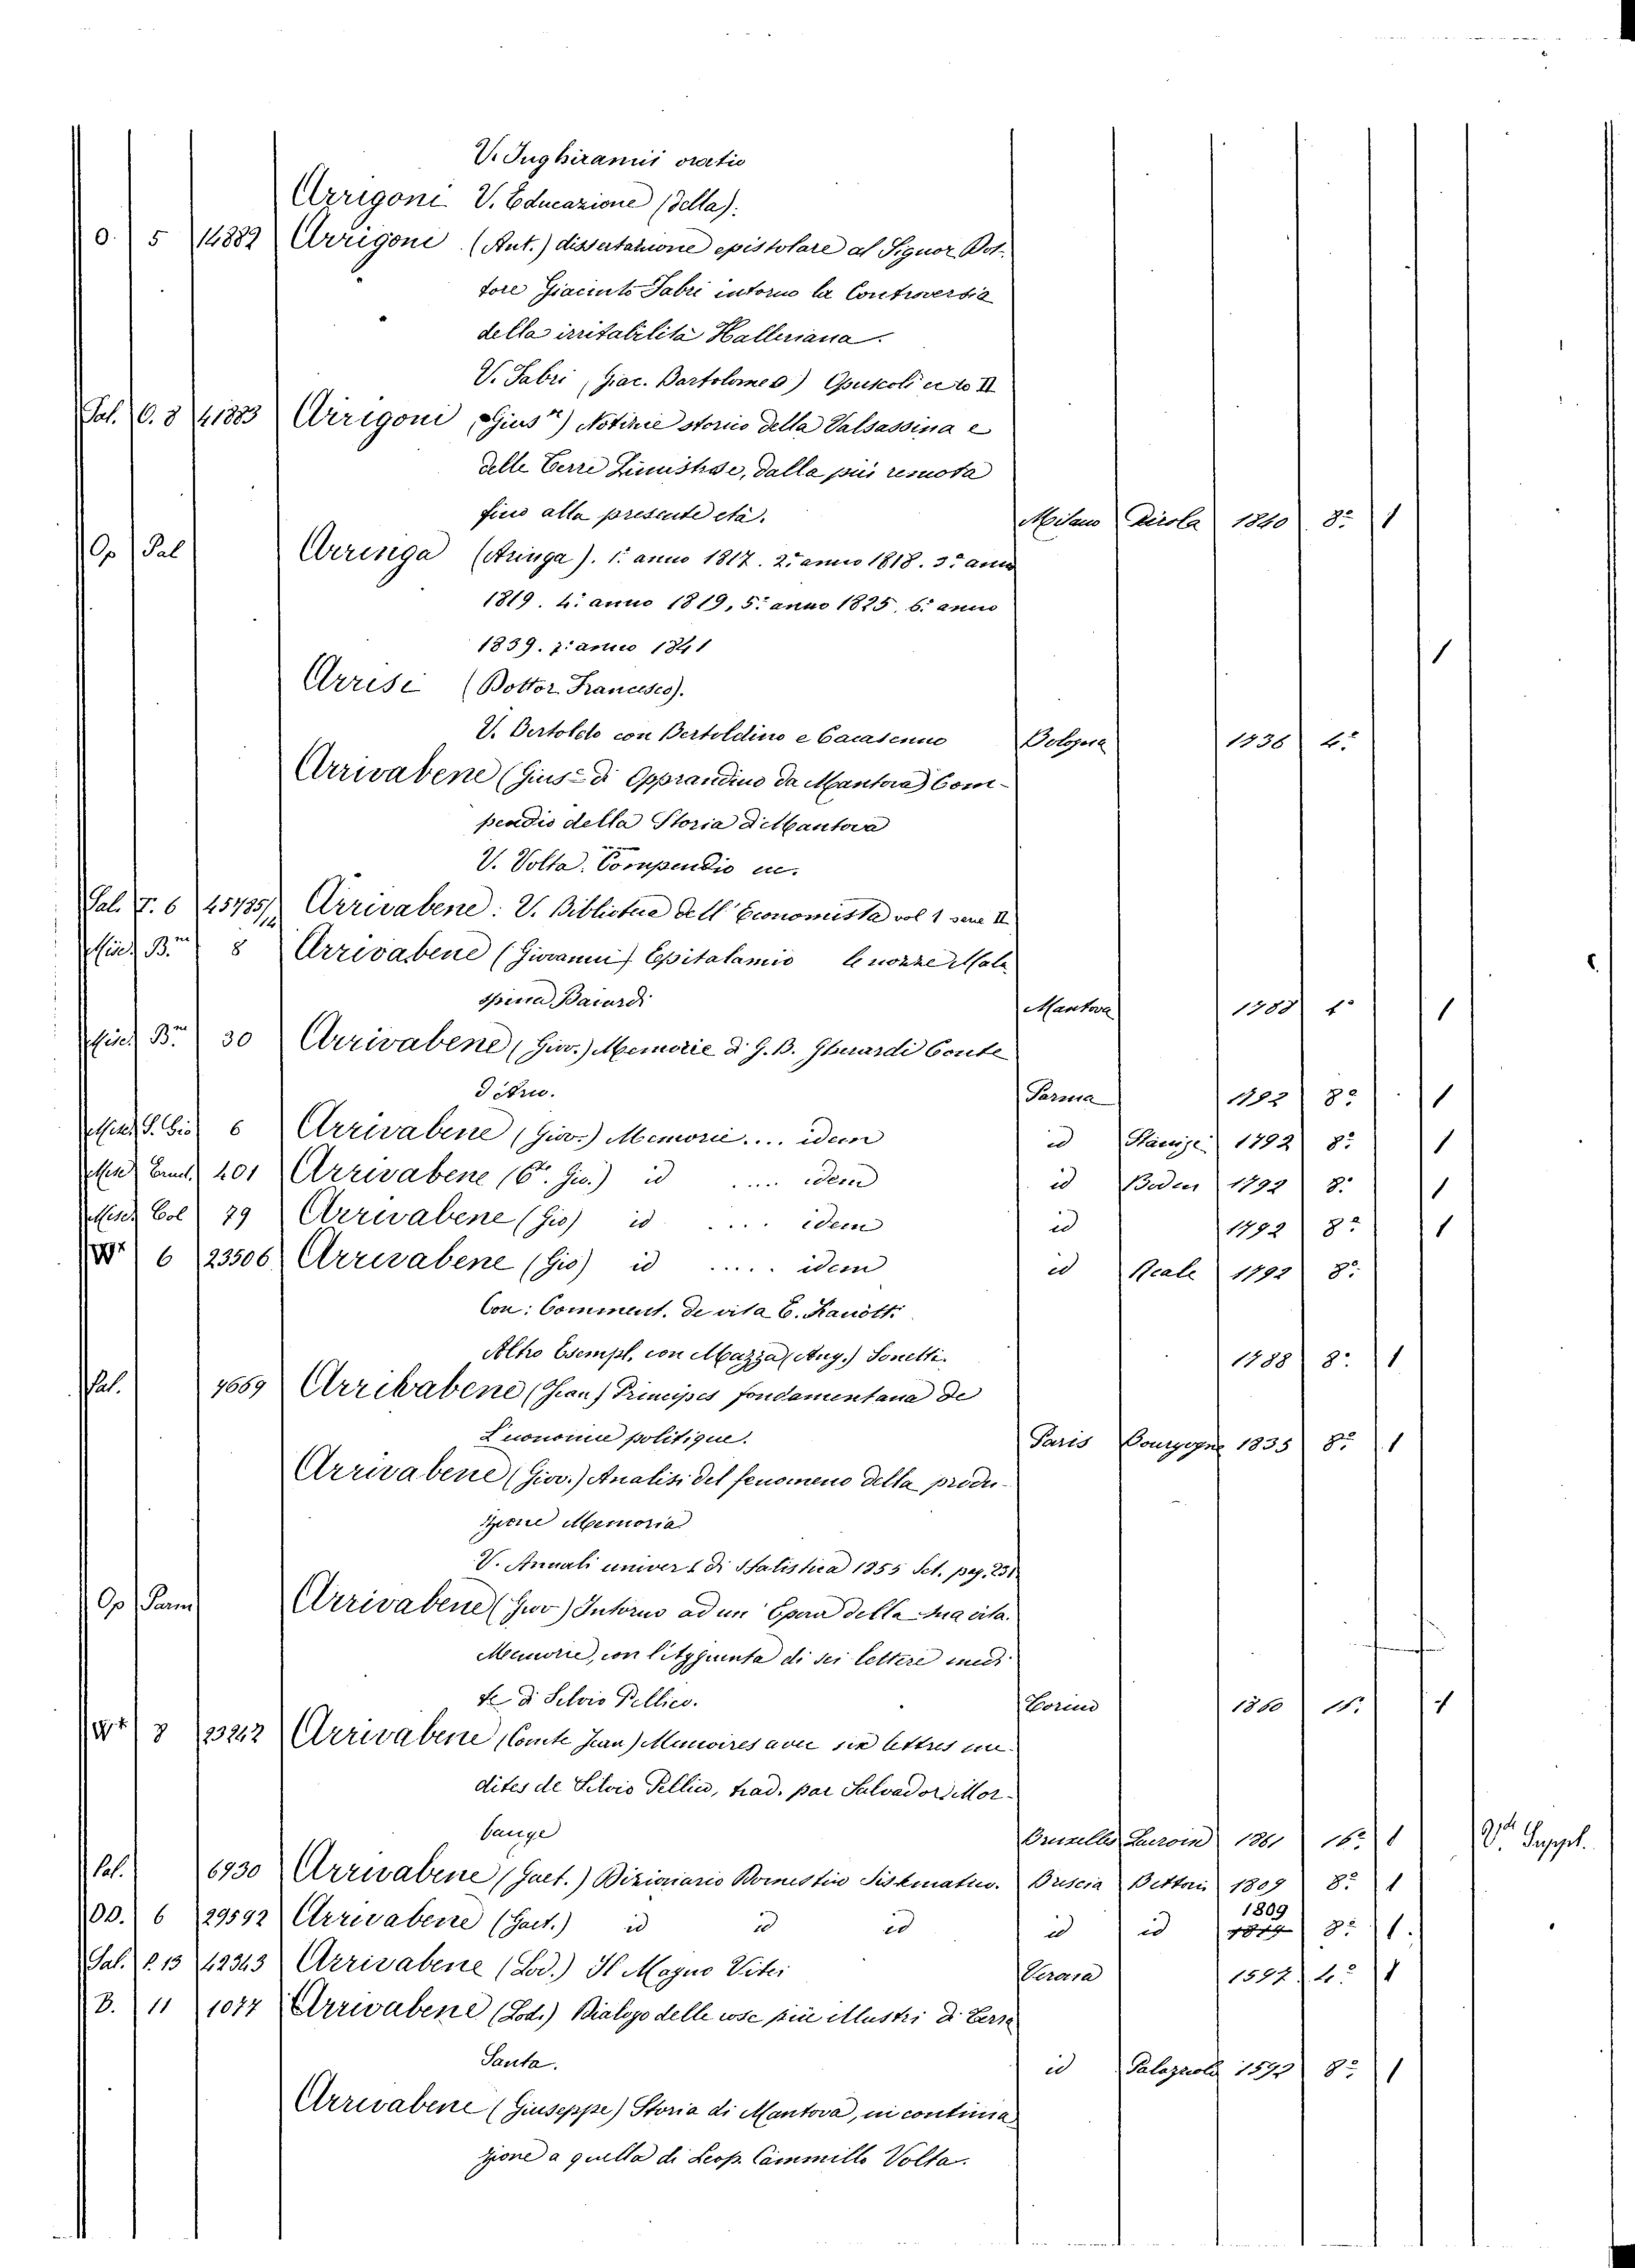 V. Inghiramii oratio
Arrigoni V. Educazione (della).
O. 5 14882 Arrigoni (Ant.) dissertazione epistolare al Signor Dot-
tore Giacinto Fabri intorno la Controversia
della irritabilità Halleriana.
V. Fabri (Giac. Bartolomeo) Opuscoli
Pal. C. 8 41883 Arrigoni (Gius.e) Notizie storico della Valsassina e
delle Terre Limistose, dalla più remota
fino alla presente età. Milano Pirola 1840 8.o 1
Op Pal Arringa (Aringa). 1.o anno 1817. 2.o anno 1818. 3.o anno
1819. 4.o anno 1819, 5.o anno 1825. 6.o anno
1839. 7.o anno 1841 1
Arrisi (Dottor Francesco).
V. Bertoldo con Bertoldino e Cacasenno Bologna 1736 4.o
Arrivabene (Gius.e di Opprandino da Mantova) Com-
pendio della Storia di Mantova
V. Volta. Compendio
Pal. F. 6 45735/14 Arrivabene: V. Biblioteca dell' Economista vol 1 serie II
Misc. B.m 8 Arrivabene (Giovanni) Epitalamio le nozze Mala
spina Baiardi Mantova 1788 1
Misc. B.m 30 Arrivabene (Giov.) Memorie di G. B. Gherardi Conte
d'Arco. Parma 1792 8.o 1
Misc. 6 Arrivabene (Giov.) Memorie.... idem id 1792 8.o 1
Misc. 401 Arrivabene (C.te Gio.) id .... idem id Boden 1792 8.o 1
Misc. Col 79 Arrivabene (Gio) id .... idem id 1792 8.o 1
6 23506 Arrivabene (Gio) id ..... idem id Reale 1792 8.o
Con: Comment. de vita C.
Altro Esempl. con Mazza (Ang.) Sonetti. 1788 8.o 1
Pal. 4669 Arrivabene (Jean) Principes fondamentana de
Economie politique. Paris Bourgogne 1835 8.o 1
Arrivabene (Giov.) Analisi del fenomeno della produ-
zione Memoria
V. Annali univers di Statistica 1855 Set. pag. 231
Op Parm Arrivabene (Giov) Intorno ad un' Epoca della sua vita.
Memorie, con l'Aggiunta di sei lettere inedi
te di Silvio Pellico. Torino 1860 1
8 23242 Arrivabene (Comte Jean) Memoires avec six lettres iné-
dites de Silvio Pellico, trad. par Salvador Mor-
bange Bruxelles 1861 16.o 1 Suppl.
Pal. 6930 Arrivabene (Gaet.) Dizionario Domestico Sistematico. Brescia Bettoni 1809 8.o 1
DD. 6 29592 Arrivabene (Gaet.) id id id id id 1809 8.o 1.
Pal. P. 13 42343 Arrivabene (Lod.) Il Magno Vitei Verona 1597 4.o 1
B. 11 1077 Arrivabene (Lod.) Dialogo delle cose più illustri di Terra
Santa. id Palazzolo 1592 8.o 1
Arrivabene (Giuseppe) Storia di Mantova, in continua
zione a quella di Leop. Cammillo Volta.